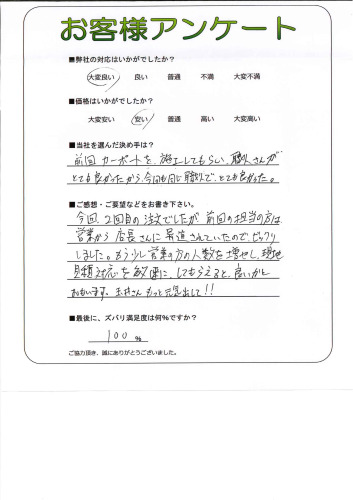 お客様アンケート
■弊社の対応はいかがでしたか？
大変良い 良い 普通 不満 大変不満
■価格はいかがでしたか？
大変安い 安い 普通 高い 大変高い
■当社を選んだ決め手は？
前回カーポートを、施工してもらい、職人さんが
とても良かったから、今回も同じ職人で、とても良かった。
■ご感想・ご要望などをお書き下さい。
今回、2回目の注文でしたが、前回の担当の方は
営業から店長さんに昇進されていたので、ビックリ
しました。もう少し営業の方の人数を増やし、現地
見積対応を敏速に、してもらえると、良いかと
おもいます。玉井さん もっと元気出して!!
■最後に、ズバリ満足度は何%ですか？
100 %
ご協力頂き、誠にありがとうございました。